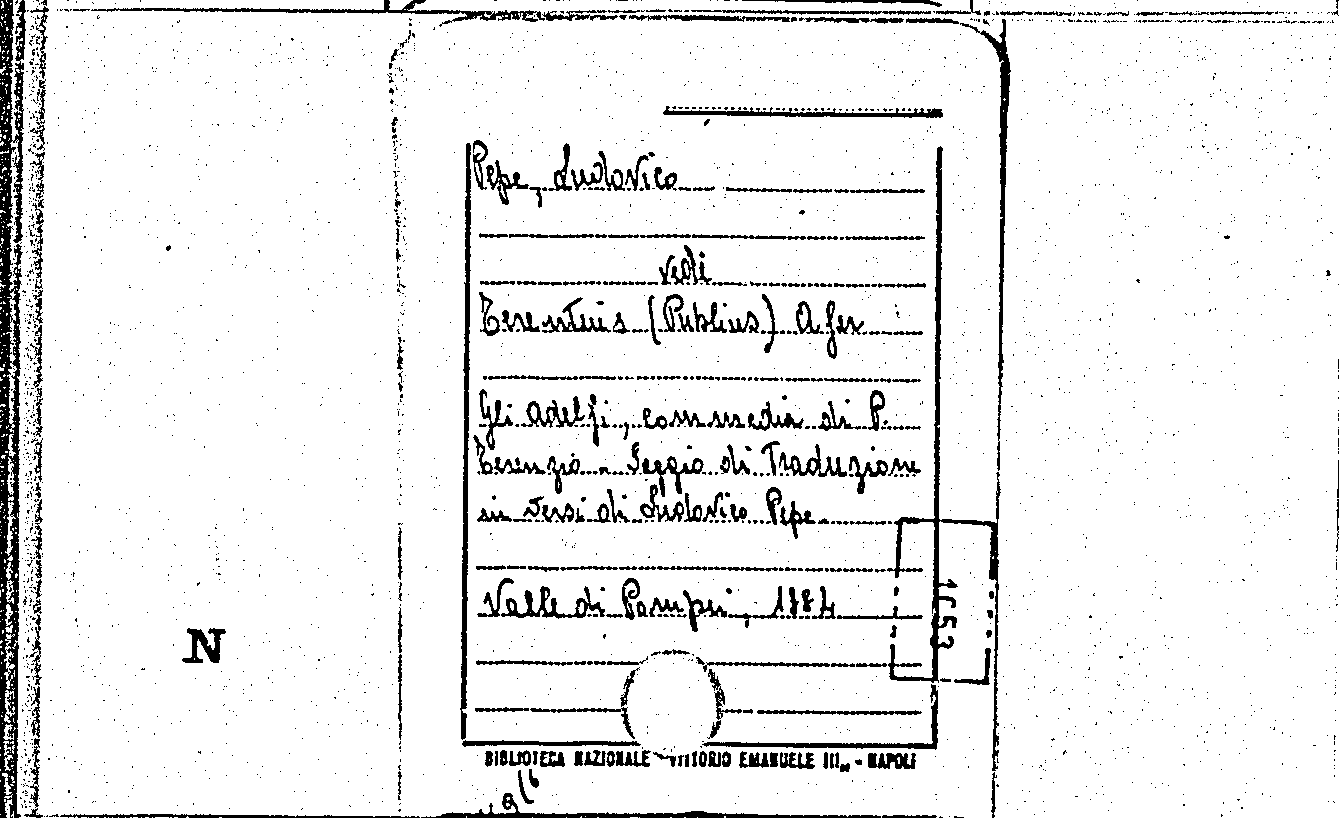 Pepe, Ludovico
vedi
Terentius (Publius) Afer
Gli Adelfi, commedia di P.
Terenzio - Saggio di Traduzione
in versi di Ludovico Pepe
Valle di Pompei, 1884
1653
N
BIBLIOTECA NAZIONALE VITTORIO EMANUELE III - NAPOLI